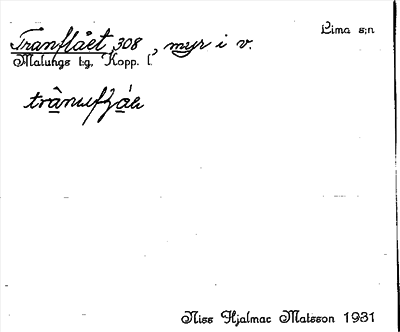 Lima s:n
Tranflået 308, myr i v.
Malungs tg, Kopp. l.
Niss Hjalmar Matsson 1931